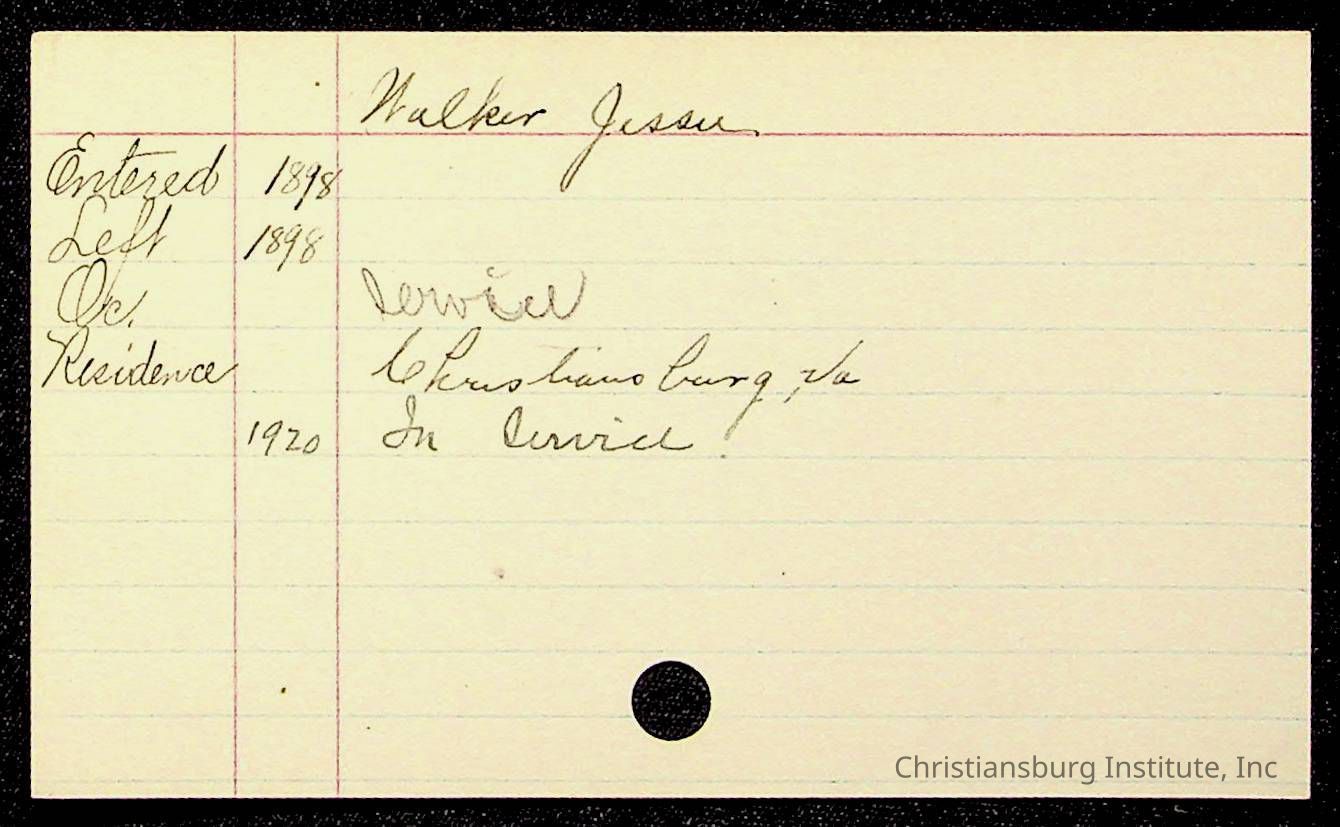 Walker Jessie
Entered 1898
Left 1898
Oc. Service
Residence Christiansburg, Va
1920 In Service
Christiansburg Institute, Inc